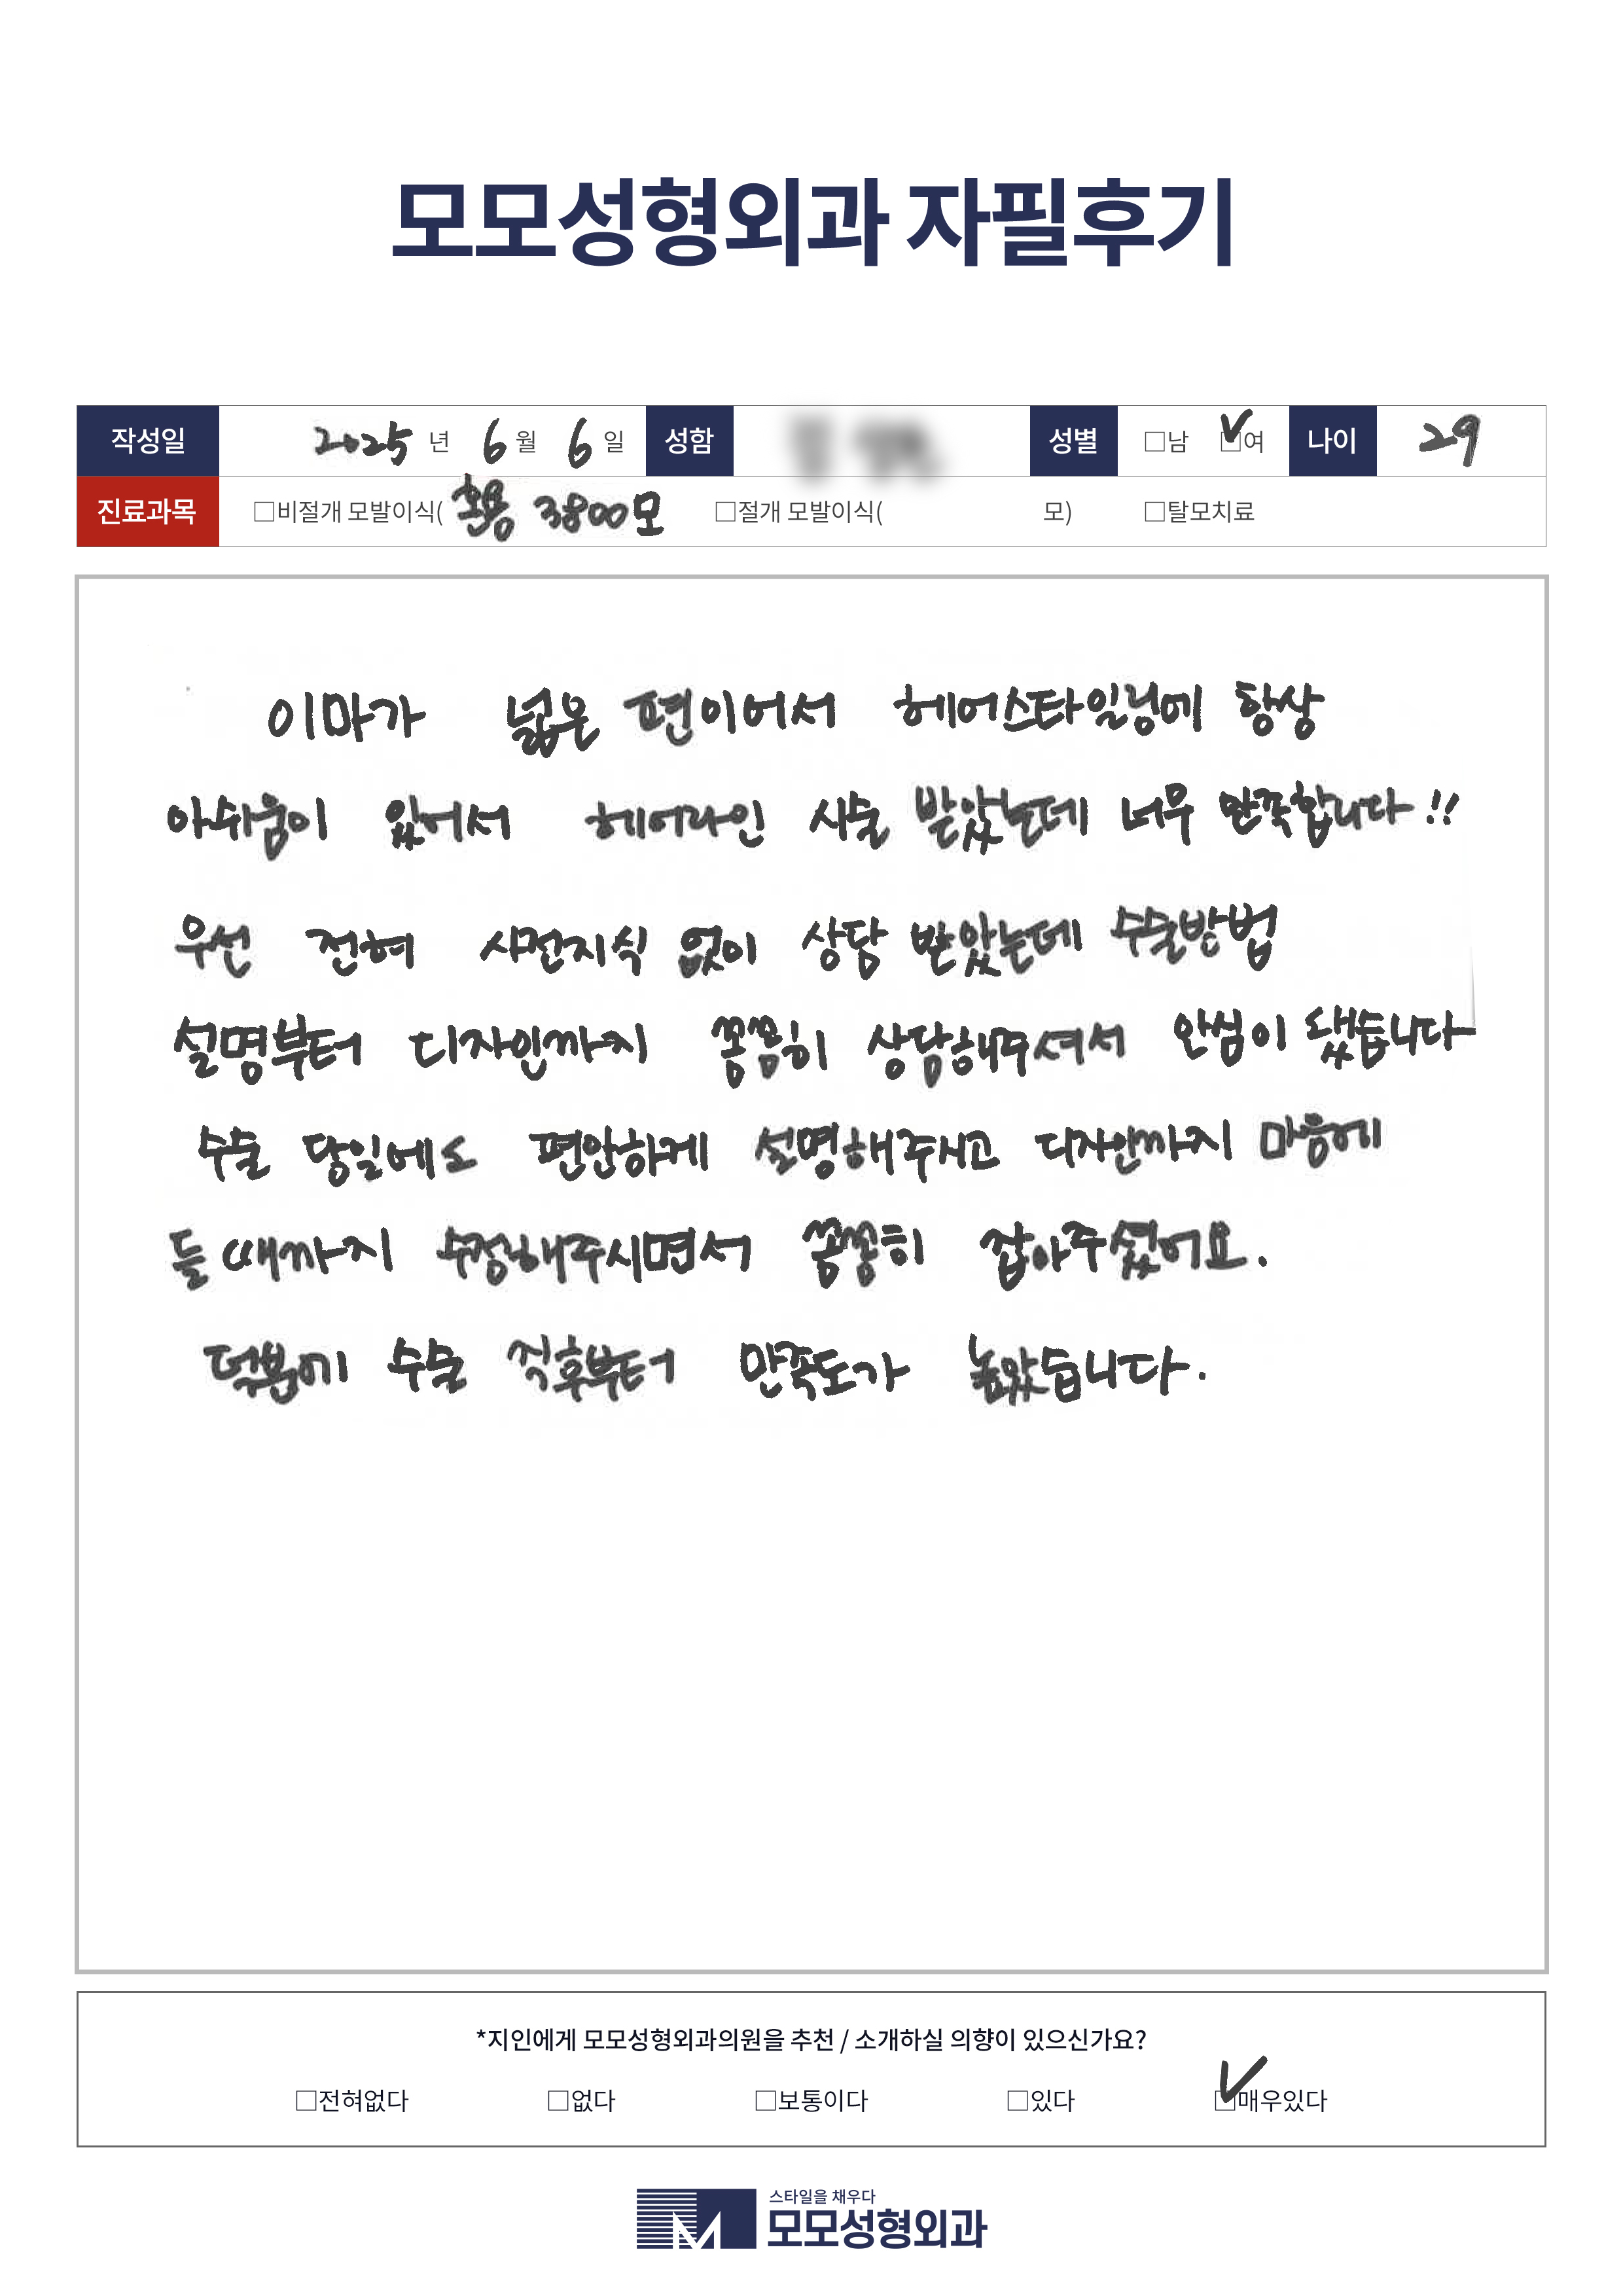 모모성형외과 자필후기
작성일 2025 년 6 월 6 일 성함 성별 □남 □여 나이 29
진료과목 □비절개 모발이식( 혼용 3800모 □절개 모발이식( 모) □탈모치료
이마가 넓은 편이어서 헤어스타일링에 항상
아쉬움이 있어서 헤어라인 시술 받았는데 너무 만족합니다!!
우선 전혀 사전지식 없이 상담 받았는데 수술방법
설명부터 디자인까지 꼼꼼히 상담해주셔서 안심이 됐습니다
수술 당일에도 편안하게 설명해주시고 디자인까지 마음에
들 때까지 수정해주시면서 꼼꼼히 잡아주셨어요.
덕분에 수술 직후부터 만족도가 높았습니다.
*지인에게 모모성형외과의원을 추천 / 소개하실 의향이 있으신가요?
□전혀없다 □없다 □보통이다 □있다 □매우있다
스타일을 채우다
모모성형외과